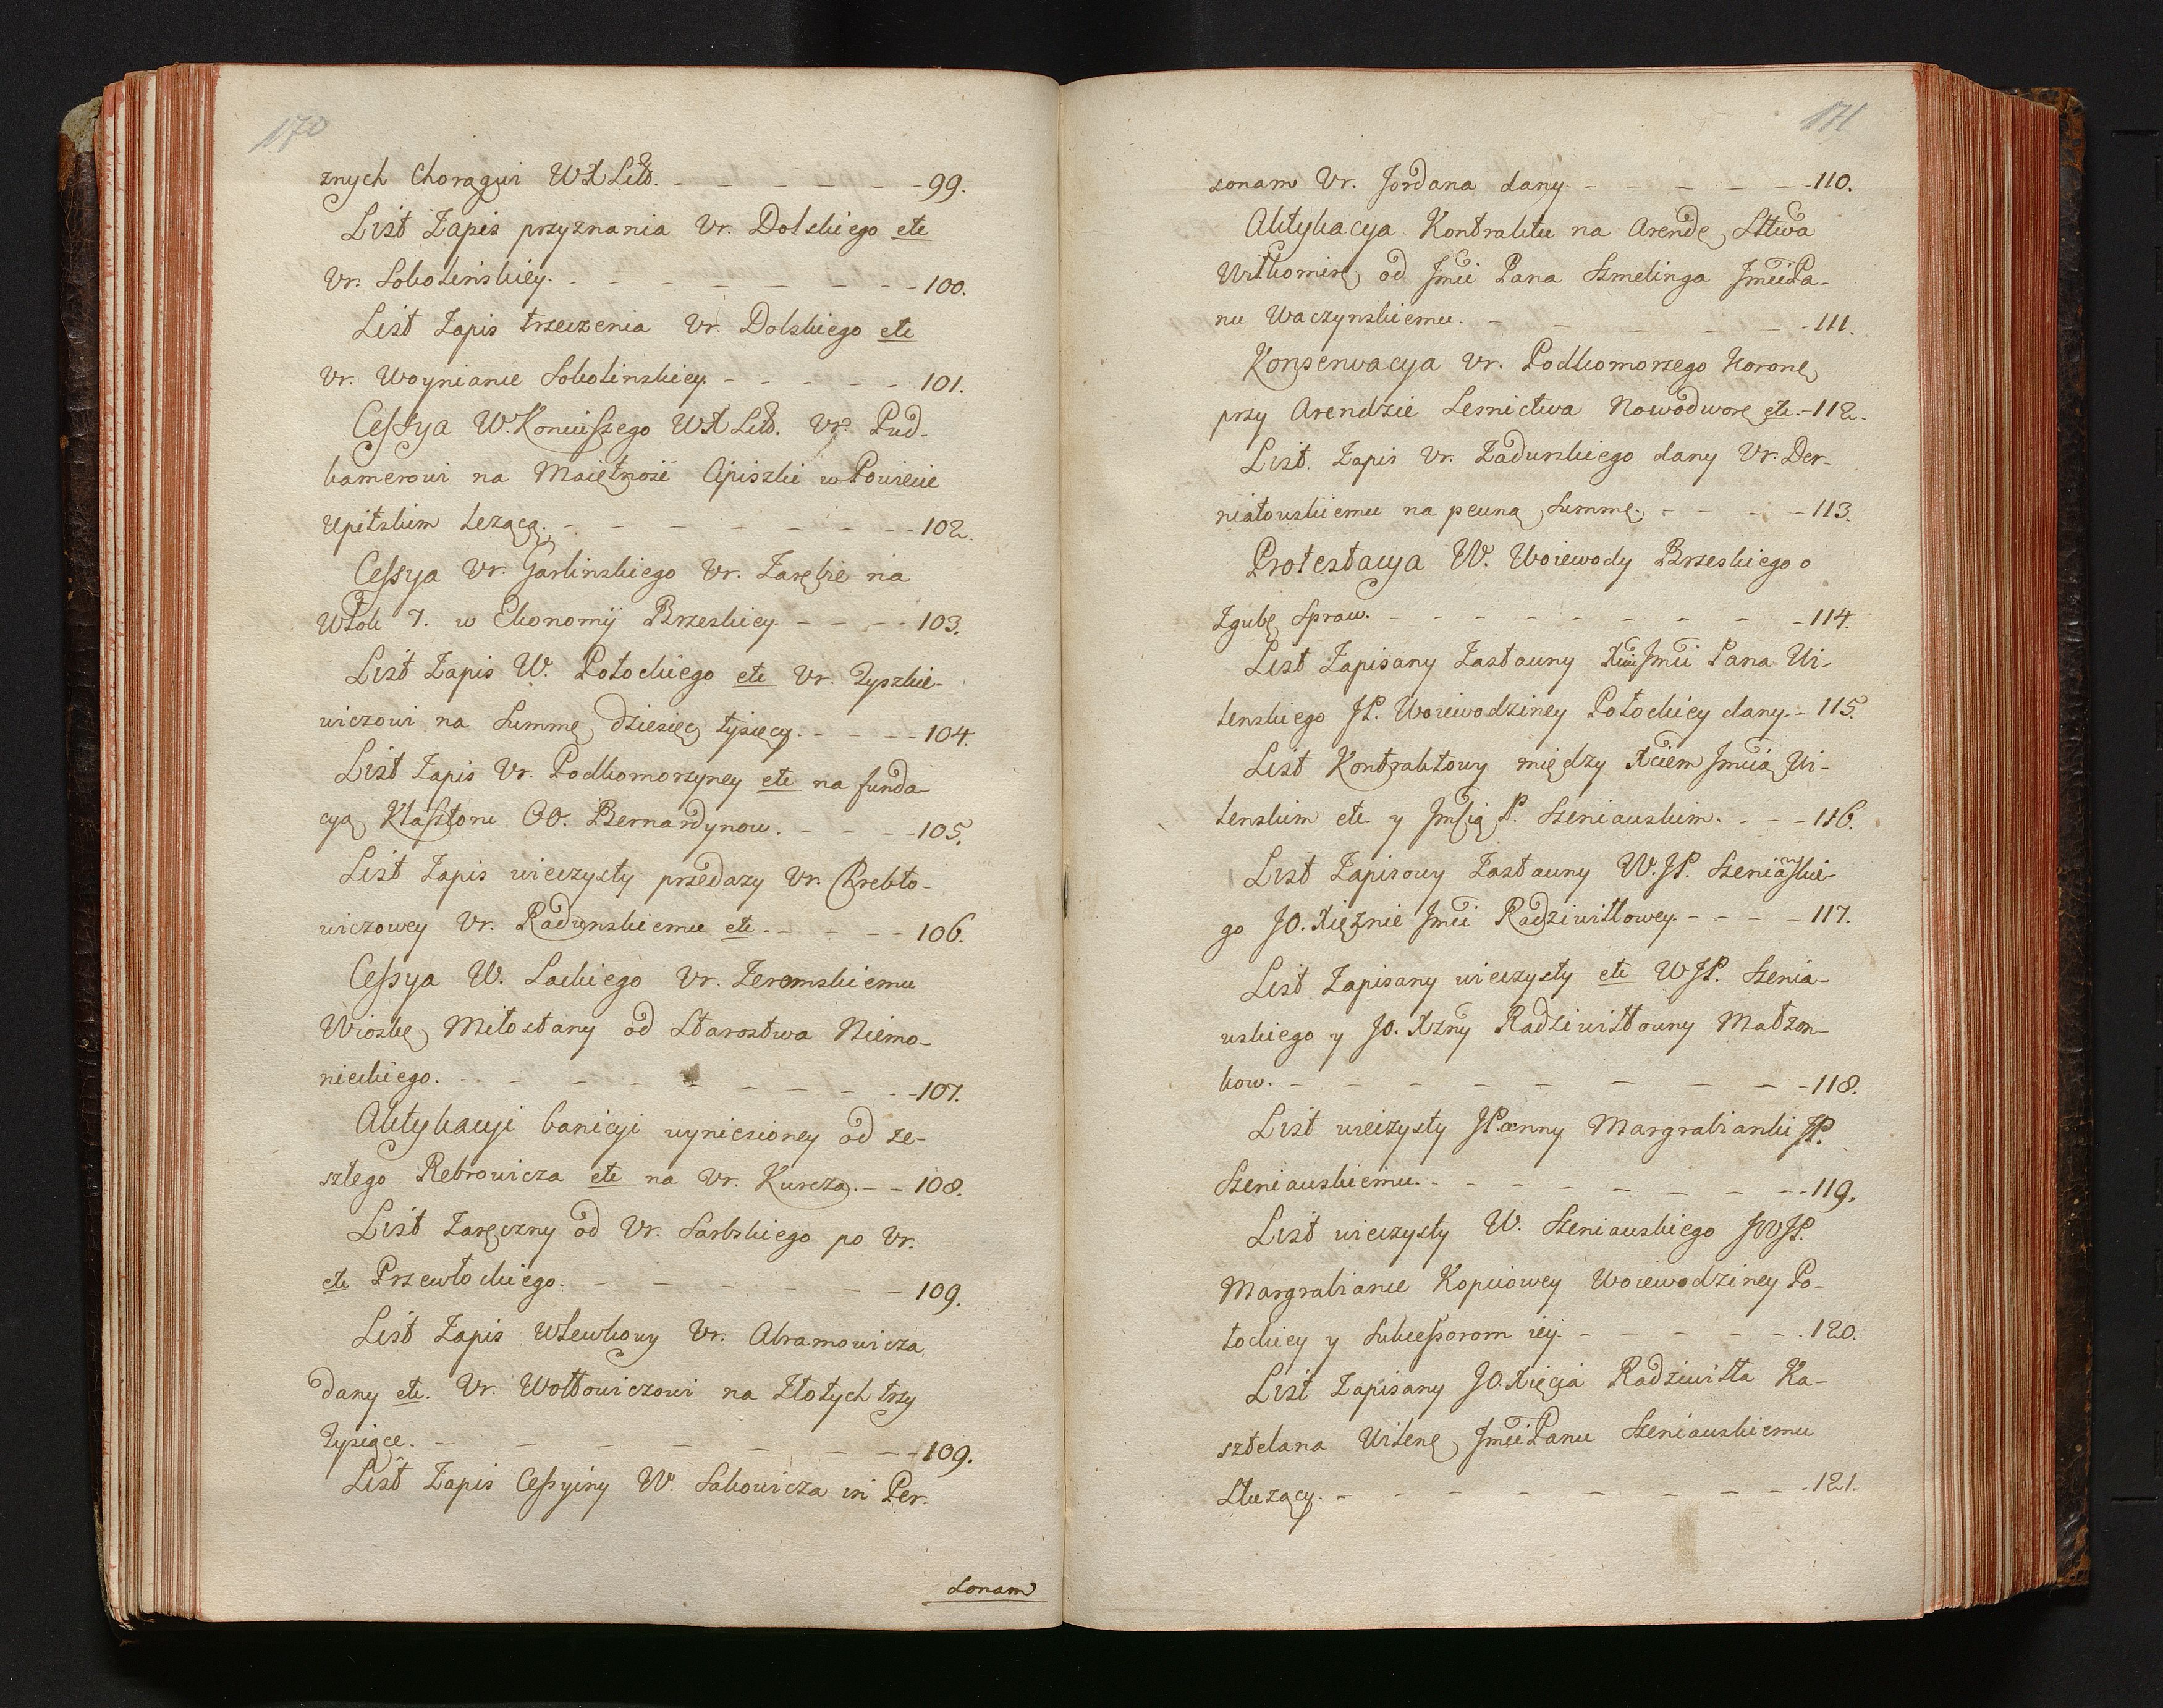 170
znych Chorągwi WXLitt. - - - - - - - 99.
List Zapis przyznania Vr. Dolskiego etc
Vr. Sokolinskiey. - - - - - - - - 100.
List Zapis trzeczenia Vr. Dolskiego etc
Vr. Woyniance Sokolinskiey. - - - - - 101.
Cessya W. Koniuszego WXLitt. Vr. Pud-
kamerowi na Maiętnosć Apiszki w Powiecie
Upitskim lezącą. - - - - - - - - 102.
Cessya Vr. Garlinskiego Vr. Zarębie na
Włok 7. w Ekonomij Brzeskiey. - - - - 103.
List Zapis W. Potockiego etc Vr. Tyszkie-
wiczowi na Summę dziesięc tysięcy. - - - - 104.
List Zapis Vr. Podkomorzyney etc na funda-
cyą Klasztoru OO. Bernardynow. - - - - 105.
List Zapis wieczysty przedazy Vr. Chrebto-
wiczowey Vr. Radunskiemu etc. - - - - 106.
Cessya W. Lackiego Vr. Zeromskiemu
Wioskę Miłostany od Starostwa Niemo-
nickiego. - - - - - - - - - 107.
Aktykacyi banicyi wyniesioney od ze-
szłego Rebrowicza etc na Vr. Kurcza. - - 108.
List Zaręczny od Vr. Sarbskiego po Vr.
etc Przewłockiego. - - - - - - - 109.
List Zapis Wlewkowy Vr. Abramowicza
dany etc. Vr. Wołłowiczowi na Złotych trzy
Tysiące. - - - - - - - - - 109.
List Zapis Cessyiny W. Sakowicza in Per-
sonam
171
sonam Vr. Jordana dany. - - - - - - 110.
Aktykacya Kontraktu na Arendę Sttwa
Wiłkomirę od Jmci Pana Szmelinga JmciPa-
nu Waczynskiemu. - - - - - - - 111.
Konserwacya Vr. Podkomorzego Koronę
przy Arendzie Lesnictwa Nowodworę etc. - 112.
List. Zapis Vr. Zadurskiego dany Vr. Der-
niałowskiemu na pewną Summę. - - - - 113.
Protestacya W. Woiewody Brzeskiego o
Zgubę Spraw. - - - - - - - - - 114.
List Zapisany Zastawny Xcia Jmci Pana Wi-
lenskiego JP. Woiewodziney Potockiey dany. - 115.
List Kontraktowy między Xciem Jmcią Wi-
lenskim etc y Jmścią P. Sieniawskim. - - - 116.
List Zapisowy Zastawny W.JP. Sieniawskie-
go JO. Xięznie Jmci Radziwiłłowey. - - - - 117.
List Zapisany wieczysty etc WJP. Sienia-
wskiego y JO. Xzny Radziwiłłowny Małzon-
kow. - - - - - - - - - 118.
List wieczysty JPanny Margrabianki JP.
Sieniawskiemu. - - - - - - - - 119.
List wieczysty W. Sieniawskiego JWJP.
Margrabiance Kopciowey Woiewodziney Po-
tockiey y Sukcessorom iey. - - - - - - 120.
List Zapisany JO. Xięcia Radziwiłła Ka-
sztelana Wilenę JmciPanu Sieniawskiemu
Słuzący. - - - - - - - - - 121.